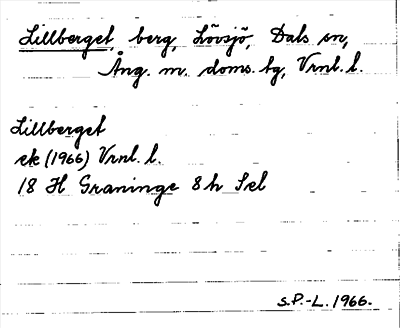 Lillberget, berg, Lövsjö, Dals sn,
Ång. m. doms. tg, Vrnl. l.
Lillberget
ek (1966) Vrnl. l.
18 H Graninge 8h Sel
S.P.-L. 1966.